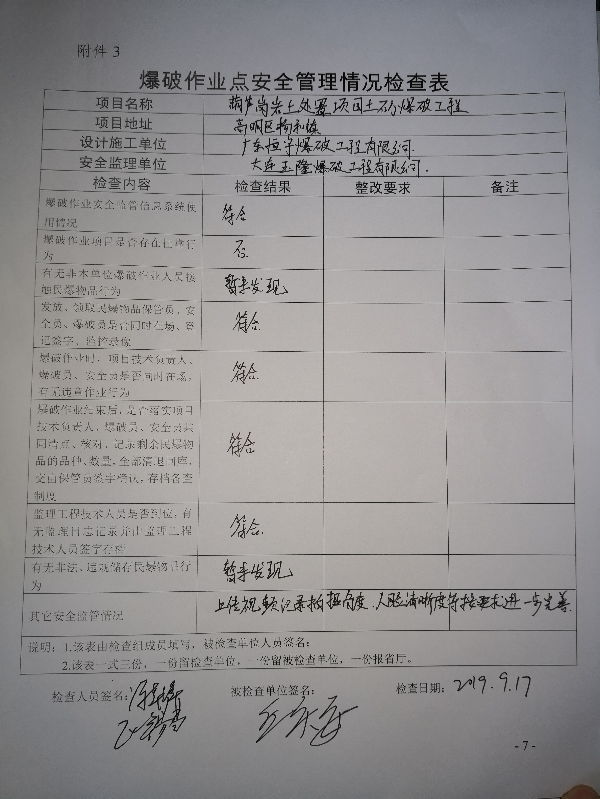 附件 3
爆破作业点安全管理情况检查表
项目名称 葫芦岗岩土处置项目土石爆破工程
项目地址 高明区杨和镇
设计施工单位 广东恒宇爆破工程有限公司
安全监理单位 大连正隆爆破工程有限公司
检查内容 检查结果 整改要求 备注
爆破作业安全监管信息系统使
用情况
符合
爆破作业项目是否存在挂靠行
为
否
有无非本单位爆破作业人员接
触民爆物品行为
暂未发现
发放、领取民爆物品保管员、安
全员、爆破员是否同时在场、登
记签字、监控录像
符合
爆破作业时，项目技术负责人、
爆破员、安全员是否同时在场，
有无违章作业行为
符合
爆破作业结束后，是否落实项目
技术负责人、爆破员、安全员共
同清点、核对、记录剩余民爆物
品的品种、数量，全部清退回库，
交由保管员签字确认，存档备查
制度
符合
监理工程技术人员是否到位，有
无监理日志记录并由监理工程
技术人员签字存档
符合
有无非法、违规储存民爆物品行
为
暂未发现
其它安全监管情况 上传视频记录拍摄角度、人脸清晰度等按要求进一步完善
说明：1.该表由检查组成员填写，被检查单位人员签名；
2.该表一式三份，一份留检查单位，一份留被检查单位，一份报省厅。
检查人员签名： 被检查单位签名： 检查日期：2019.9.17
- 7 -